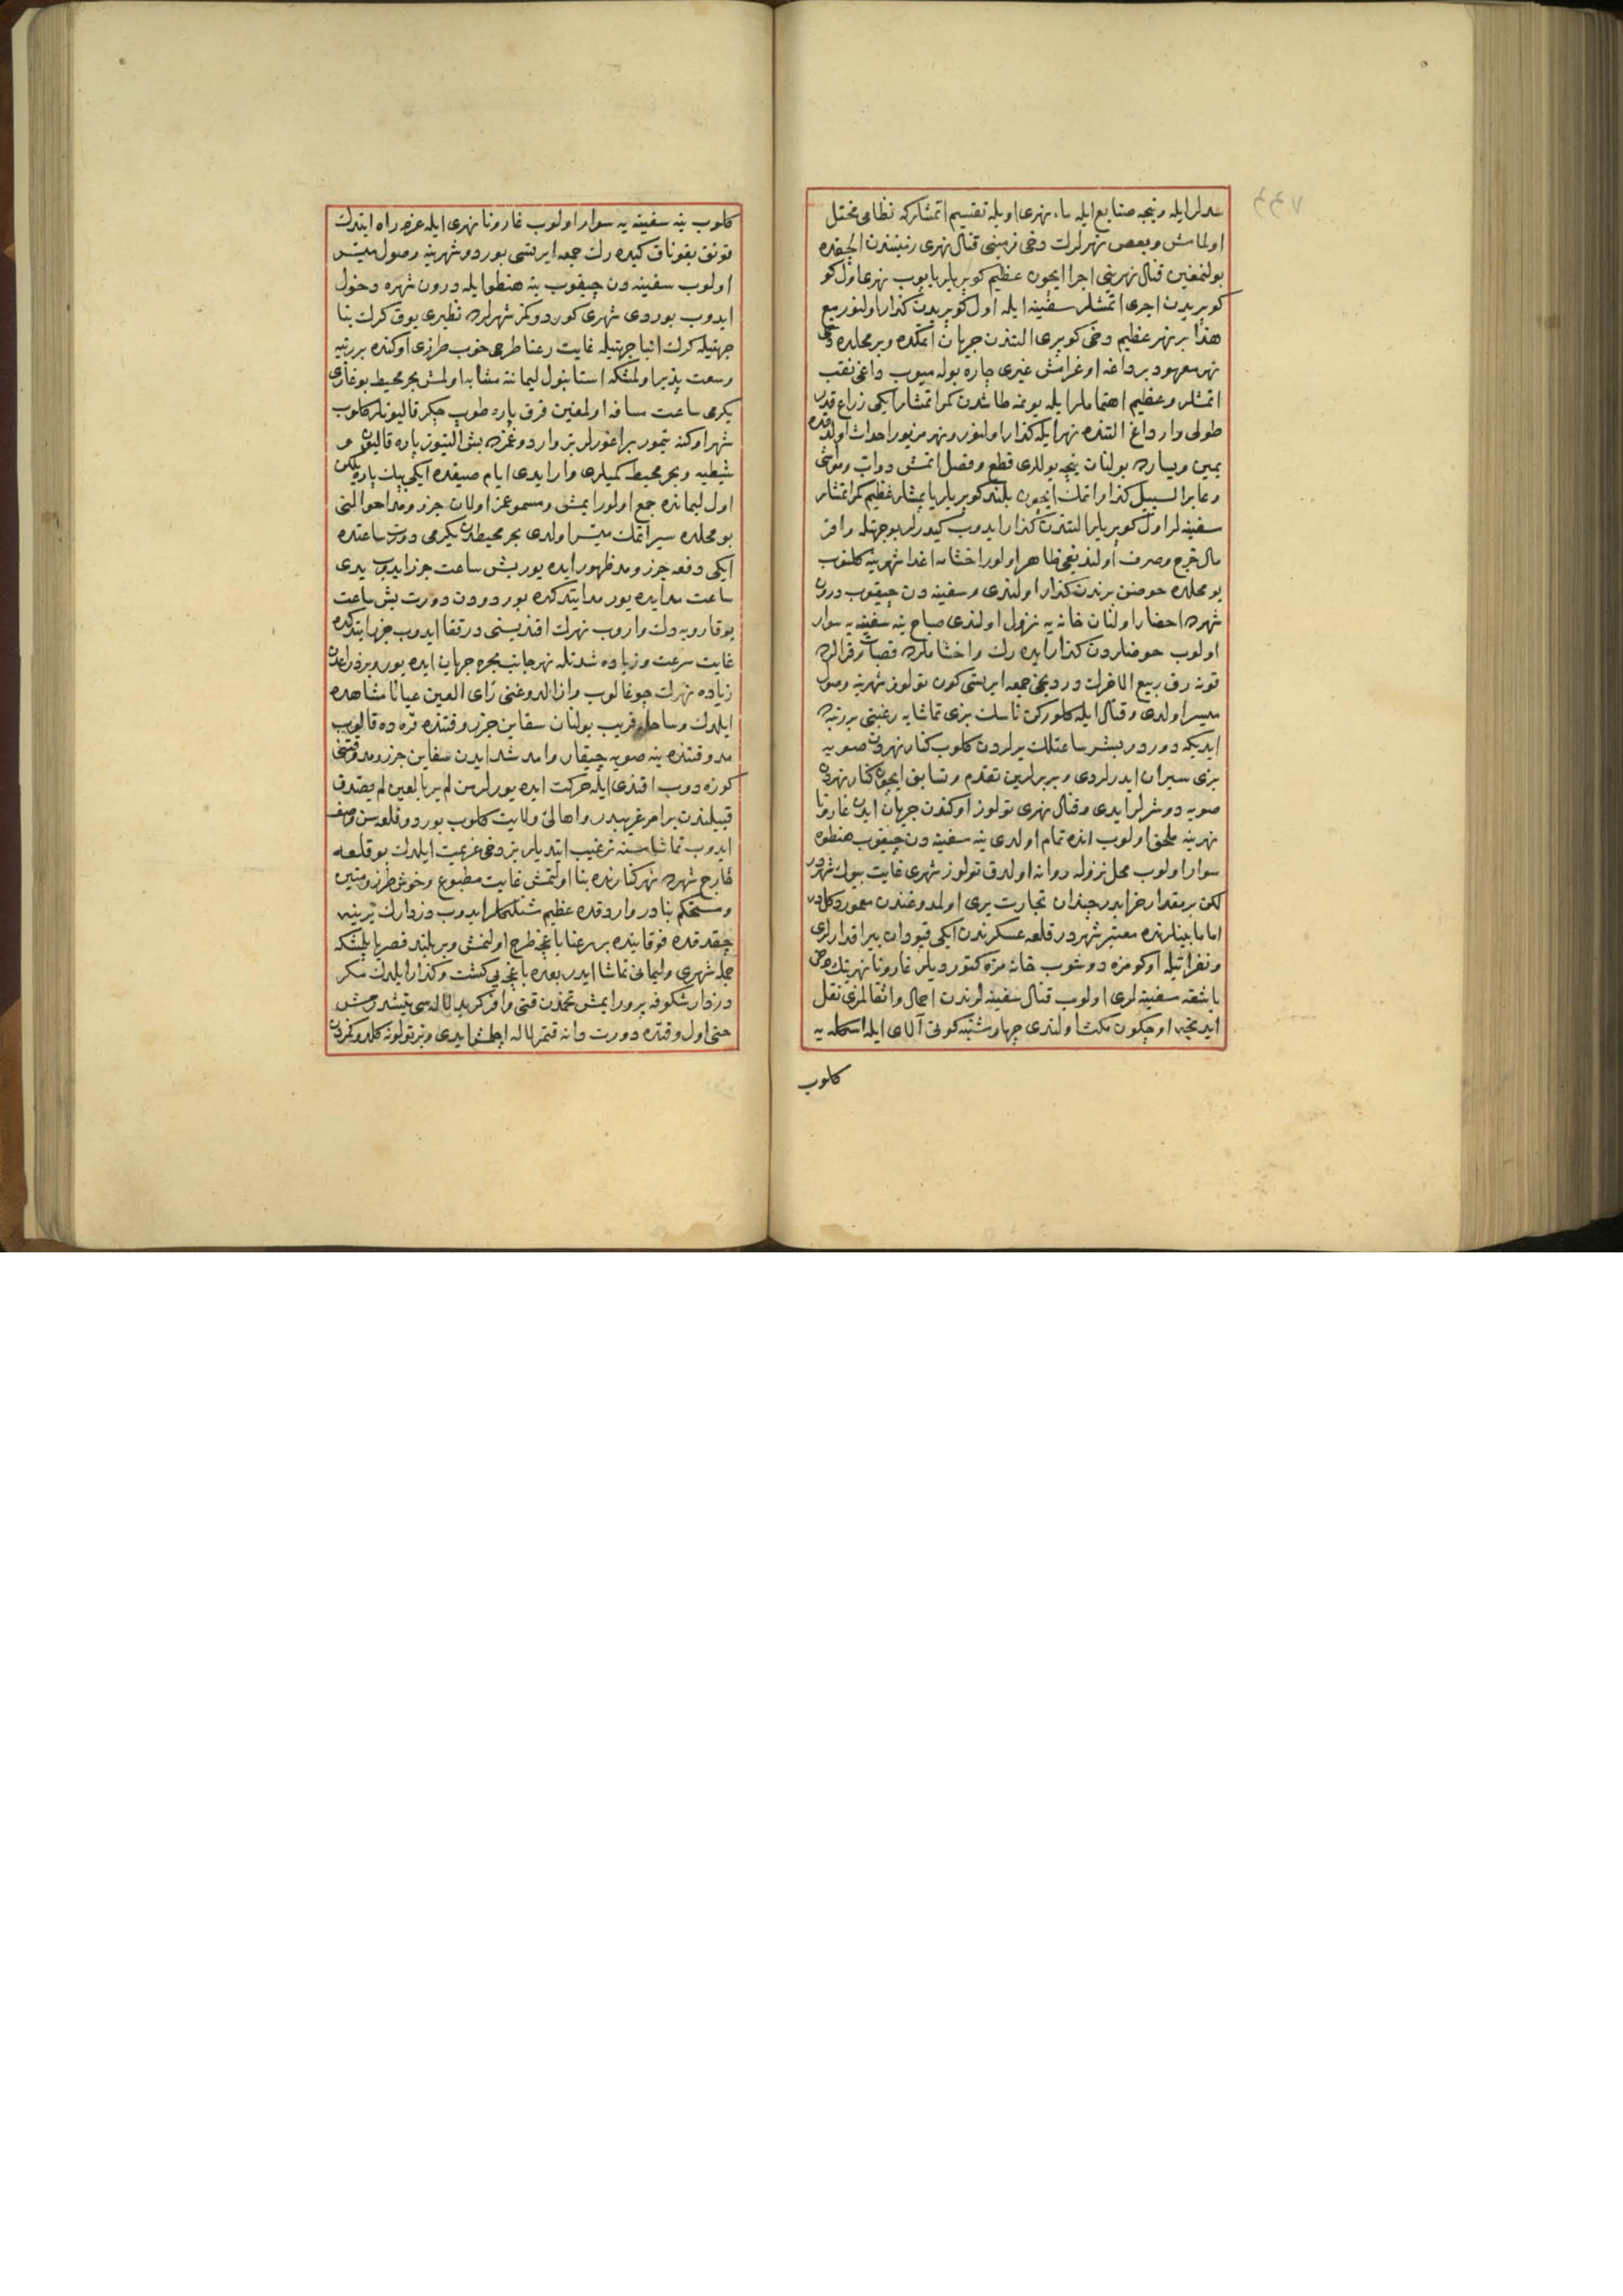 سدلر ایله و نیجه صنایع ایله ماء نهری اویله تقسیم اتمشلرکه نظامی مختل
اولمامش و بعض نهرلرك دخی زمینی قنال نهری رتبتندن الچقده
بولنمغین قنال نهرینی اجرا ایچون عظیم کوپریلر یاپوب نهری اول کو
کوپریدن اجری اتمشلر سفینه ایله اول کوپریدن کذار اولنور مع
هذا بر نهر عظیم دخی کوپری التندن جریان اتمکده و بر محلده دخی
نهر معهود بر داغه اوغرامش غیری چاره بوله میوب داغی نقب
اتمشلر و عظیم اهتماملر ایله یونمه طاشدن کمر اتمشلر ایکی زراع قدر
طولی وار داغ التنده نهر ایله کذار اولنور و نهر مزبور احداث اولندقده
یمین و یسارده بولنان نیجه یوللری قطع و فصل اتمش دواب و مواشی
و عابر السبیل کذار اتمك ایچون بلند کوپریلر یاپمشلر عظیم کمر اتمشلر
سفینه لر اول کوپریلر التندن کذار ایدوب کیدرلر بو جهتله وافر
مال خرج و صرف اولندیغی ظاهر اولور اخشامه اغدا شهرینه کلنوب
بو محلده حوضنی برندن کذار اولندی و سفینه دن چیقوب درون
شهرده احضار اولنان خانه یه نزول اولندی صباح ینه سفینه یه سوار
اولوب حوضلردن کذار ایده رك و اخشاملرده قصبات و قرالرده
قونه رق ربیع الاخرك دردنجی جمعه ایرتسی کون تولوز شهرینه وصول
میسر اولدی و قنال ایله کلورکن ناسك بزی تماشایه رغبتی بر رتبه
ایدیکه دورد و بشر ساعتلك یرلردن کلوب کنار نهردن صویه
بزی سیران ایدرلردی و بربرلرین تقدم و تسابق ایچون کنار نهردن
صویه دوشرلر ایدی و قنال نهری تولوز اوکندن جریان ایدن غارونا
نهرینه ملحق اولوب انده تمام اولدی ینه سفینه دن چیقوب هنطوه
سوار اولوب محل نزوله روانه اولدق تولوز شهری غایت بیوك شهردر
لکن بر مقدار خرابدر چندان تجارت یری اولمدوغندن معمور دکلدر
اما مابینلرنده معتبر شهردر قلعه عسکرندن ایکی قپودان بیراقدارلری
و نفراتیله اوکومزه دوشوب خانه مزه کتوردیلر غارونا نهرینك دخی
باشقه سفینه لری اولوب قنال سفینه لرندن احمال و اثقالمزی نقل
ایدنجه اوچ کون مکث اولندی چهارشنبه کونی آلای ایله اسکله یه
کلوب
کلوب ینه سفینه یه سوار اولوب غارونا نهری ایله عزم راه ایتدك
قوناق بقوناق کیده رك جمعه ایرتسی بوردو شهرینه وصول میسر
اولوب سفینه دن چیقوب ینه هنطو ایله درون شهره دخول
ایدوب بوردی شهری کوردوکمز شهرلرده نظیری یوق کرك بنا
جهتیله کرك انبا جهتیله غایت رعنا طرحی خوب طرزی اوکنده بر رتبه
وسعت پذیر اولمشکه استانبول لیماننه مشابه اولمش بحر محیط بوغازی
یکرمی ساعت مسافه اولمغین قرق پاره طوب چکر قالیونلر کلوب
شهر اوکنه تیمور براغورلر بز واردوغمزده بش التیوز پاره قالیون و
شیطیه و بحر محیط کمیلری وار ایدی ایام صیفده ایکی بیك پاره یلکن
اول لیمانده جمع اولور ایمش و مسموعمز اولان جزر و مد احوالنی
بو محلده سیر اتمك میسر اولدی بحر محیطدن یکرمی دورت ساعتده
ایکی دفعه جزر و مد ظهور ایده یور بش ساعت جزر ایدوب یدی
ساعت مد ایده یور مد ایتدکده بوردودن دورت بش ساعت
یوقارویه دك واروب نهرك اقندیسنی درقفا ایدوب جزر ایتدکده
غایت سرعت و زیاده شدتله نهر جانب بحره جریان ایده یور و بر ذراعدن
زیاده نهرك چوغالوب و ازالدوغنی رأی العین عیانا مشاهده
ایلدك و ساحله قریب بولنان سفاین جزر وقتنده قره ده قالوب
مد وقتنده ینه صویه چیقار و امد شد ایدن سفاین جزر و مد وقتنی
کوزه دوب اقندی ایله حرکت ایده یورلر من لم یر بالعین لم یصدق
قبیلندن بر امر غریبدر و اهالئ ولایت کلوب بوردو قلعه سن وصف
ایدوب تماشاسنه ترغیب ایتدیلر بز دخی عزیمت ایلدك بو قلعه
خارج شهرده نهر کنارنده بنا اولنمش غایت مطبوع و خوش طرز و متین
و مستحکم بنادر واردقده عظیم شنلکلر ایدوب دزدارك یرینه
چیقدقده فوقانیده بر رعنا باغچه طرح اولنمش و بر بلند قصر یاپلمشکه
جمله شهری و لیمانی تماشا ایدر بعده باغچه یی کشت و کذار ایلدك مکر
دزدار شکوفه پرور ایمش تخمدن قتی وافر کریه لاله سی یتشدرمش
حتی اول وقتده دورت دانه قتمر لاله اچلمش ایدی و بز تولونه کلدوکمزدن